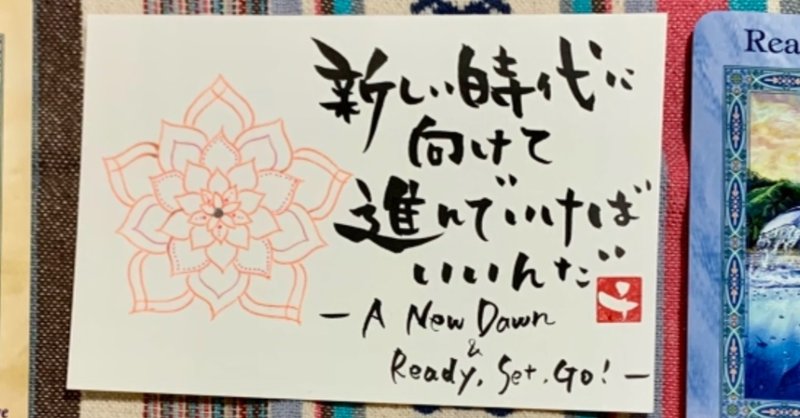 新しい時代に
向けて
進んでいけば
いいんだ
ー A New Dawn
&
Ready, Set, Go! ー
Rea